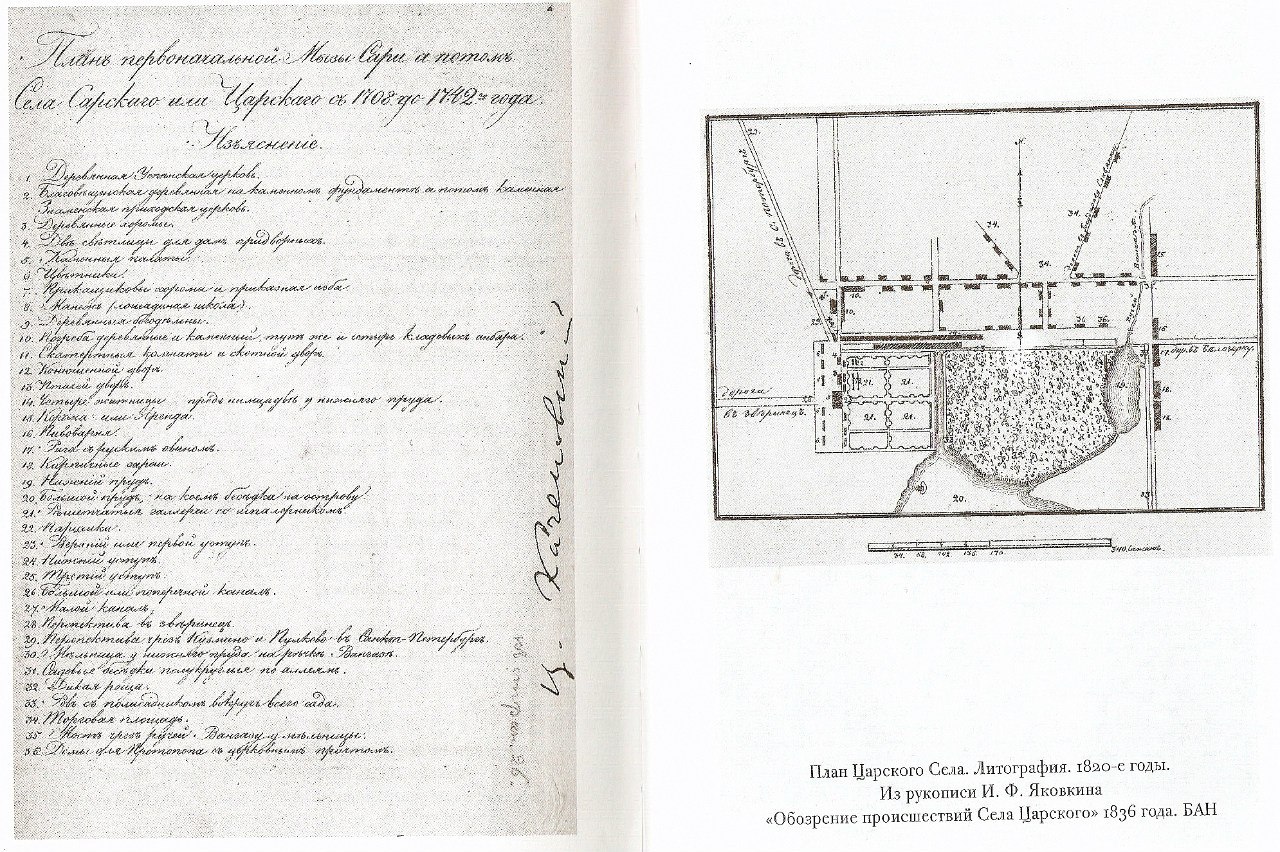 Планъ первоначальной Мызы Сари а потомъ
Села Сарскаго или Царскаго съ 1708 до 1742го года.
Изъясненіе.
1. Деревянная Успѣнская церковь.
2. Благовѣщенская деревянная на каменномъ фундаментѣ а потомъ каменная
Знаменская приходская церковь.
3. Деревянные хоромы.
4. Двѣ свѣтлицы для дамъ придворныхъ.
5. Каменныя палаты.
6. Цвѣтники.
7. Прикащиковы хорома и приказная изба.
8. Манежъ (лошадиная школа).
9. Деревянныя богодѣльны.
10. Погреба деревянные и каменный, тутъ же и четыре кладовыхъ анбара.
11. Скатертныя комнаты и скотной дворъ.
12. Конюшенной дворъ.
13. дворъ.
14. Четыре житницы предъ площадью у нижняго пруда.
15. или Аренда.
16. Пивоварня.
17. Рига съ рускимъ овиномъ.
18. Кирпичные сараи.
19. Нижній прудъ.
20. Большой прудъ, на коемъ бесѣдка на острову.
21. Рѣшетчатыя галлереи со шпалерникомъ.
22.
23. Верхній или первой уступъ.
24. Нижній уступъ.
25. Третій уступъ.
26. Большой или поперечной каналъ.
27. Малой каналъ.
28. Перспектива въ звѣринецъ.
29. Перспектива чрезъ Кузмино и Пулково въ Санктъ-Петербургъ.
30. Мельница у нижняго пруда на рѣчкѣ Вангази.
31. Садовые бесѣдки полукруглые по аллеямъ.
32. Дикая роща.
33. Ровъ съ полисадникомъ вокругъ всего сада.
34. Торговая площадь.
35. Мостъ чрезъ ручей Вангазу у мѣльницы.
36. Домы для Протопопа съ церковнымъ причтомъ.
29.
34.
34.
34.
15.
10.
10.
29.
36. 36.
16.
17.
дор. въ
21. 21.
21. 21.
19.
18.
18.
дорога
въ звѣринецъ
20.
34. 68. 102. 136. 170. 340. Сажень.
План Царского Села. Литография. 1820-е годы.
Из рукописи И. Ф. Яковкина
«Обозрение происшествий Села Царского» 1836 года. БАН